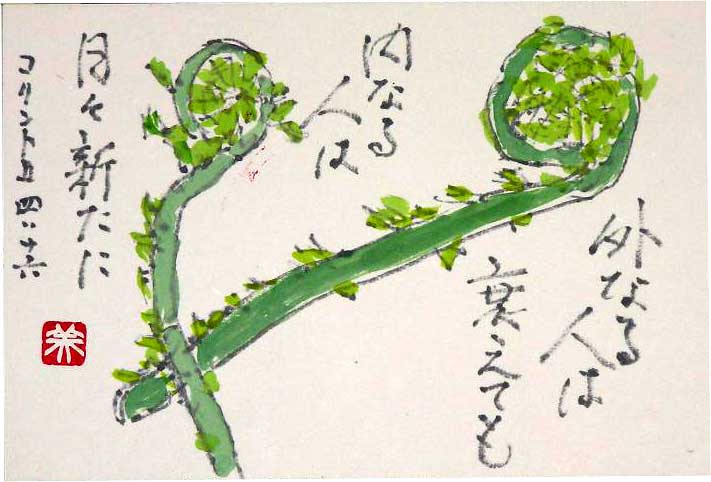 外なる
人は
衰えても
内なる
人は
日々新たに
コリントⅡ四:十六